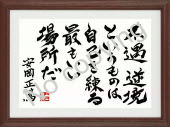 不遇 逆境
というものは
自己を練る
最もいい
場所だ
安岡正篤
no copying